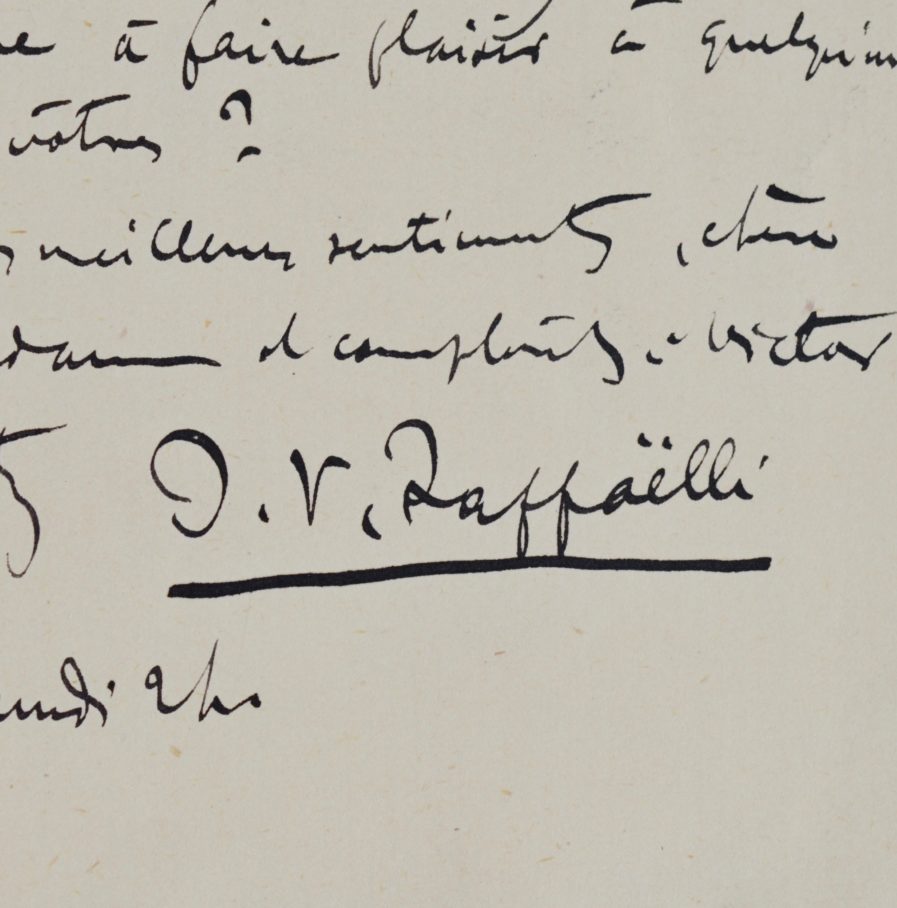 à faire plaisir à quelqu'un
vôtres ?
meilleurs sentiments, chère
et compliments à Victor
J. F. Raffaëlli
undi 2h.